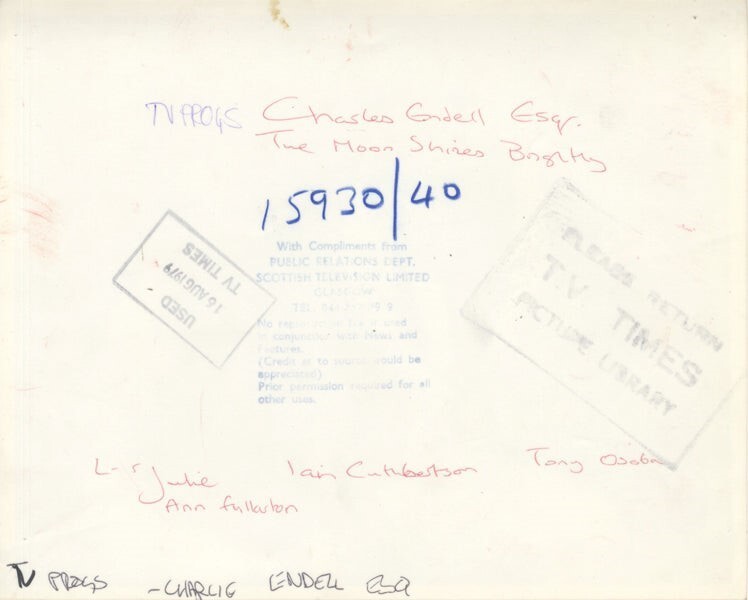 TV PROGS Charles Endell Esqr.
The Moon Shines Brightly
15930/40
USED
16 AUG 1979
TV TIMES
With Compliments from
PUBLIC RELATIONS DEPT.
SCOTTISH TELEVISION LIMITED
GLASGOW
TEL. 041
No reproduction fee if used
in conjunction with News and
Features.
(Credit as to source would be
appreciated)
Prior permission required for all
other uses.
PLEASE RETURN
T.V. TIMES
PICTURE LIBRARY
L-r Julie Iain Cuthbertson Tony Osoba
Ann Fullarton
TV PROGS - CHARLIE ENDELL ESQ